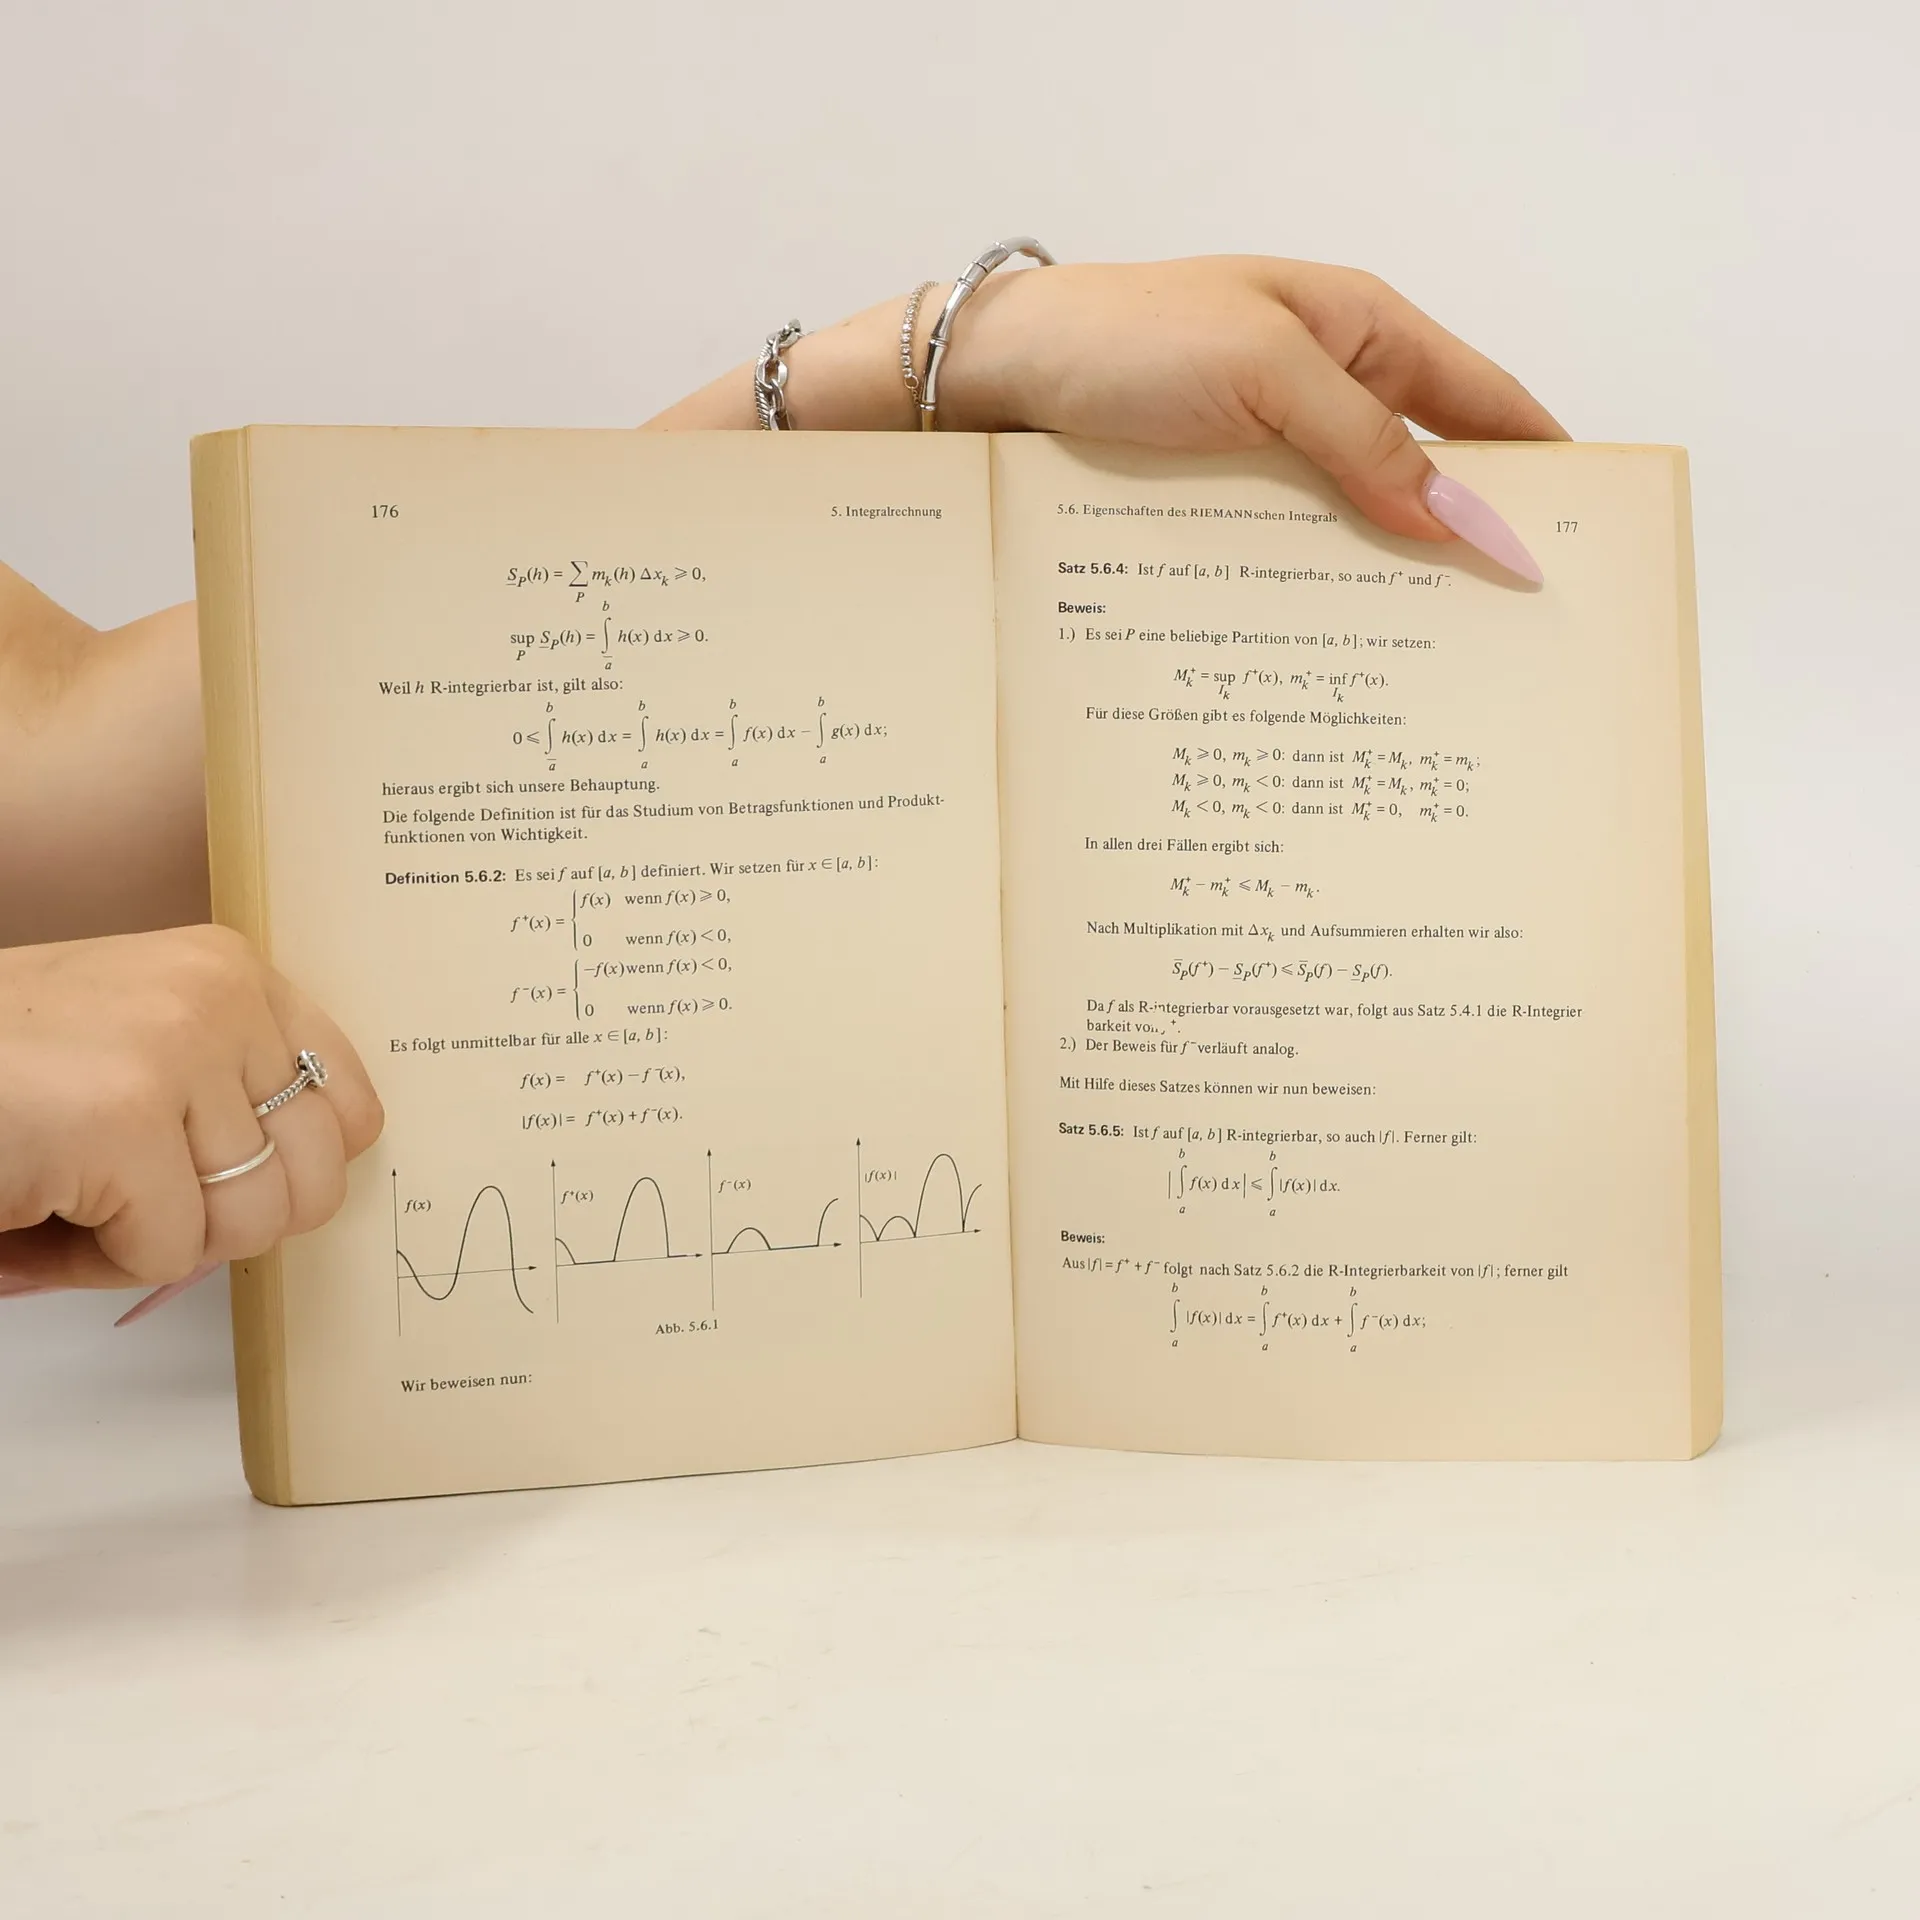 176 5. Integralrechnung
S̲_P(h) = ∑_P m_k(h) Δx_k ⩾ 0,
sup_P S̲_P(h) = ∫_a̅^b h(x) dx ⩾ 0.
Weil h R-integrierbar ist, gilt also:
0 ⩽ ∫_a̅^b h(x) dx = ∫_a^b h(x) dx = ∫_a^b f(x) dx − ∫_a^b g(x) dx;
hieraus ergibt sich unsere Behauptung.
Die folgende Definition ist für das Studium von Betragsfunktionen und Produkt-
funktionen von Wichtigkeit.
Definition 5.6.2: Es sei f auf [a, b] definiert. Wir setzen für x ∈ [a, b]:
f⁺(x) = { f(x) wenn f(x) ⩾ 0,
0 wenn f(x) < 0,
f⁻(x) = { −f(x) wenn f(x) < 0,
0 wenn f(x) ⩾ 0.
Es folgt unmittelbar für alle x ∈ [a, b]:
f(x) = f⁺(x) − f⁻(x),
|f(x)| = f⁺(x) + f⁻(x).
f(x) f⁺(x) f⁻(x) |f(x)|
Abb. 5.6.1
Wir beweisen nun:
5.6. Eigenschaften des RIEMANNschen Integrals 177
Satz 5.6.4: Ist f auf [a, b] R-integrierbar, so auch f⁺ und f⁻.
Beweis:
1.) Es sei P eine beliebige Partition von [a, b]; wir setzen:
M_k⁺ = sup_{I_k} f⁺(x), m_k⁺ = inf_{I_k} f⁺(x).
Für diese Größen gibt es folgende Möglichkeiten:
M_k ⩾ 0, m_k ⩾ 0: dann ist M_k⁺ = M_k, m_k⁺ = m_k;
M_k ⩾ 0, m_k < 0: dann ist M_k⁺ = M_k, m_k⁺ = 0;
M_k < 0, m_k < 0: dann ist M_k⁺ = 0, m_k⁺ = 0.
In allen drei Fällen ergibt sich:
M_k⁺ − m_k⁺ ⩽ M_k − m_k.
Nach Multiplikation mit Δx_k und Aufsummieren erhalten wir also:
S̅_P(f⁺) − S̲_P(f⁺) ⩽ S̅_P(f) − S̲_P(f).
Da f als R-integrierbar vorausgesetzt war, folgt aus Satz 5.4.1 die R-Integrier
barkeit ⁺.
2.) Der Beweis für f⁻ verläuft analog.
Mit Hilfe dieses Satzes können wir nun beweisen:
Satz 5.6.5: Ist f auf [a, b] R-integrierbar, so auch |f|. Ferner gilt:
|∫_a^b f(x) dx| ⩽ ∫_a^b |f(x)| dx.
Beweis:
Aus |f| = f⁺ + f⁻ folgt nach Satz 5.6.2 die R-Integrierbarkeit von |f|; ferner gilt
∫_a^b |f(x)| dx = ∫_a^b f⁺(x) dx + ∫_a^b f⁻(x) dx;